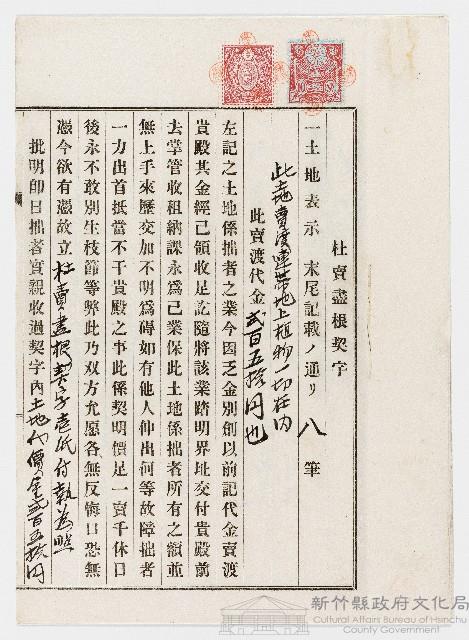 杜賣盡根契字
一土地表示　末尾記載ノ通リ　八　筆
此土地賣渡連帶地上植物一切在內
此賣渡代金貳百五拾円也
左記之土地係拙者之業今因乏金別創以前記代金賣渡
貴殿其金經已領收足訖隨將該業踏明界址交付貴殿前
去掌管收租納課永爲己業保此土地係拙者所有之額並
無上手來歷交加不明爲碍如有他人伸出何等故障拙者
一力出首抵當不干貴殿之事此係契明價足一賣千休口
後永不敢別生枝節等弊此乃双方允愿各無反悔口恐無
憑今欲有憑故立杜賣盡根契字壱紙付執為照
批明卽日拙者實親收過契字內土地代價金貳百五拾円
新竹縣政府文化局
Cultural Affairs Bureau of Hsinchu
County Government